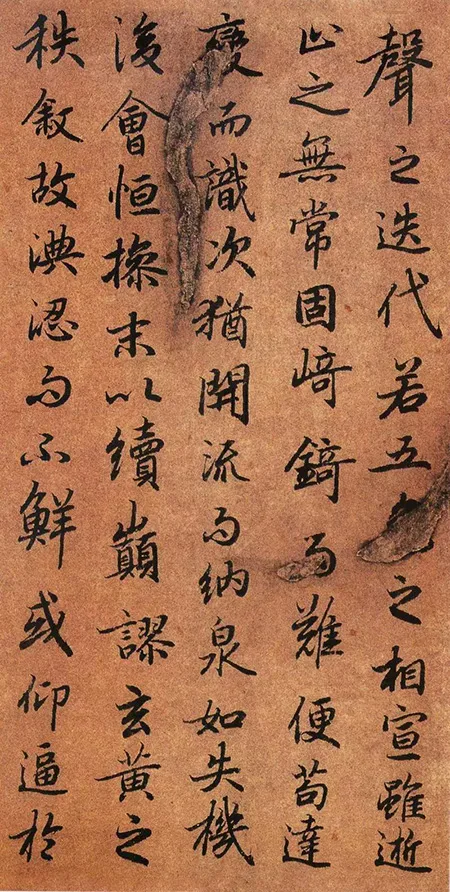 聲之迭代若五色之相宣雖逝
止之無常固崎錡而難便苟達
變而識次猶開流而納泉如失機
後會恒操末以續巔謬玄黃之
秩敘故淟涊而不鮮或仰逼於